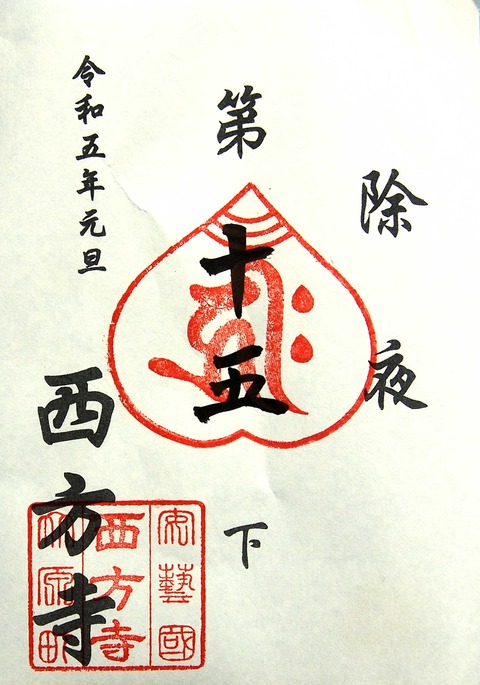 除夜
第十五下
令和五年元旦
西方寺
安藝國
西方寺
竹原町